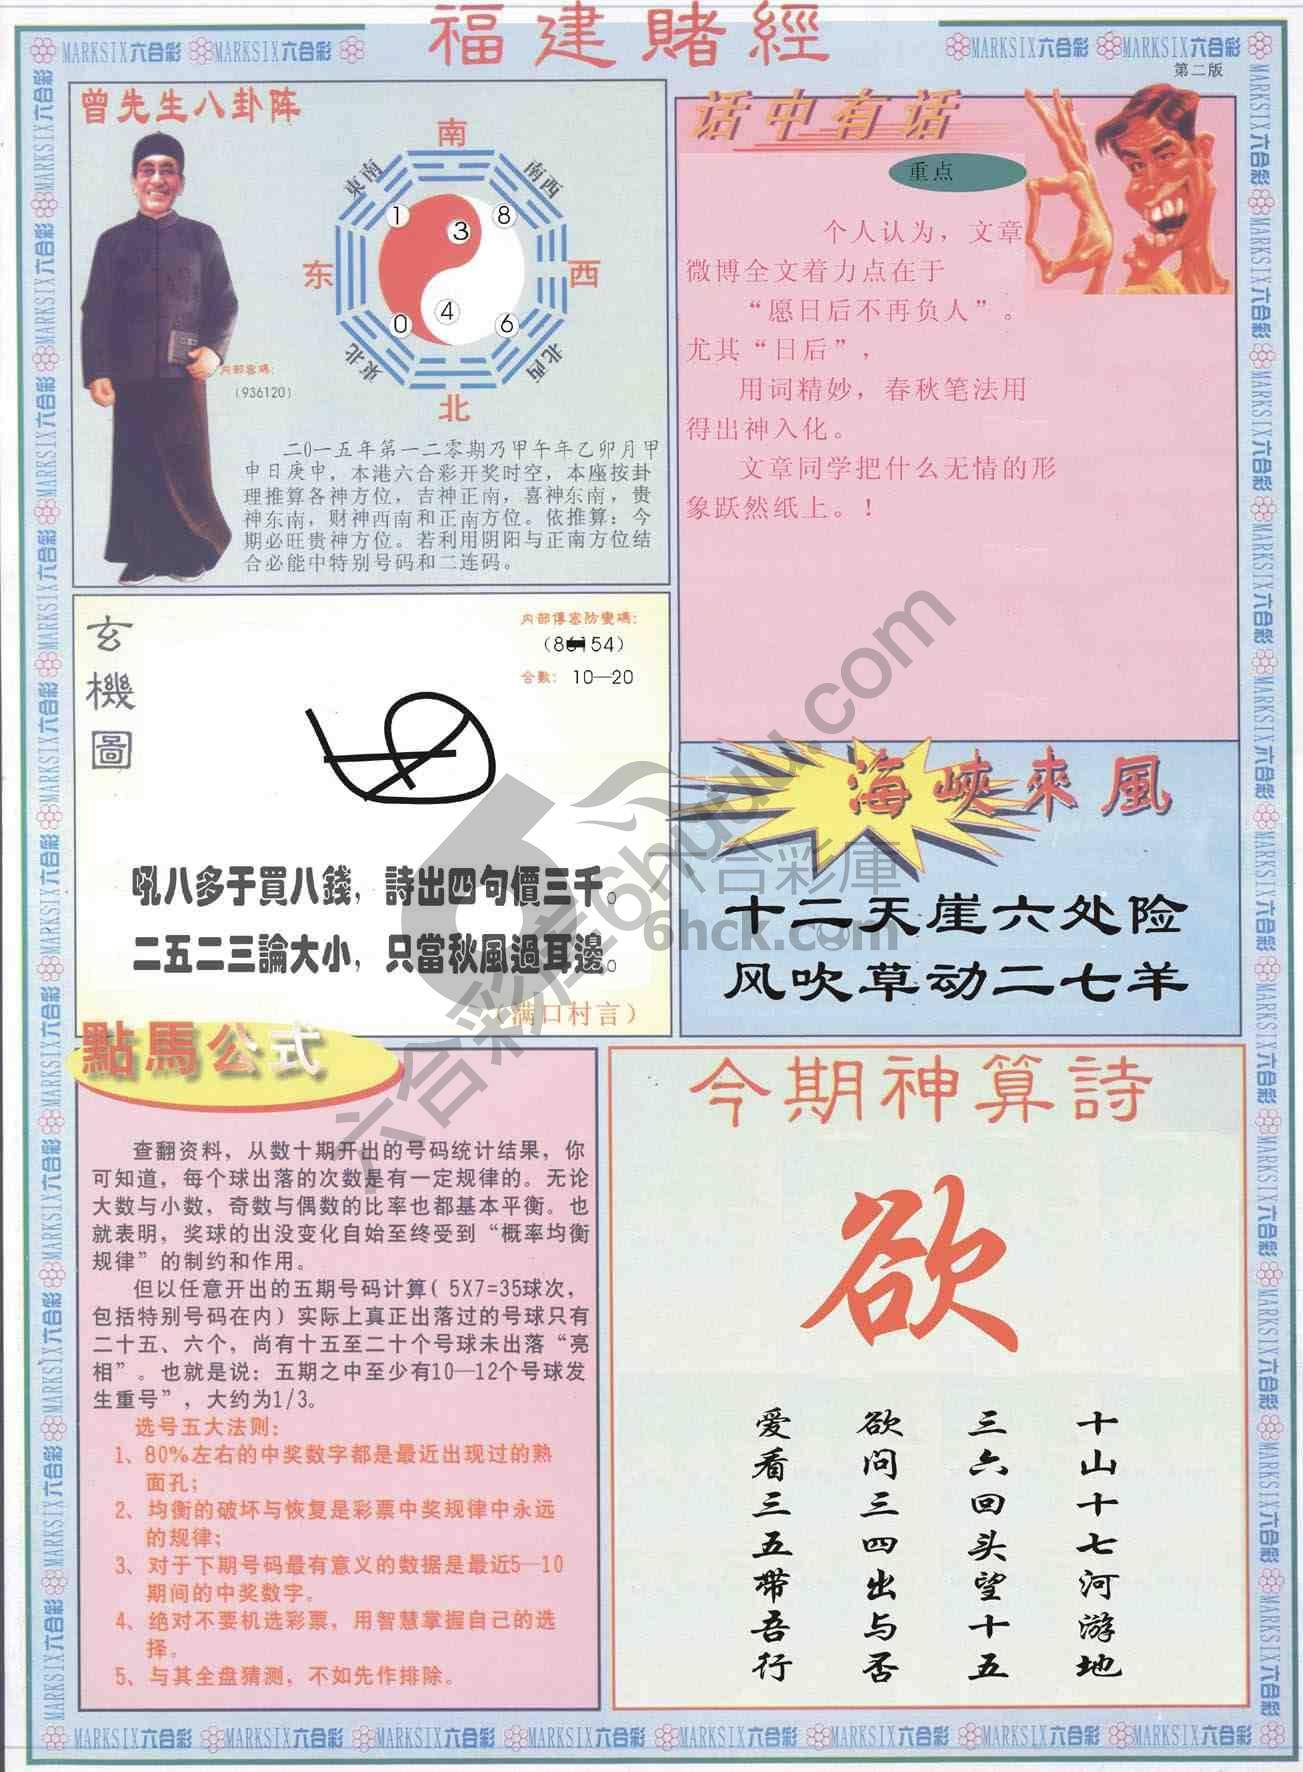 福建賭經
MARKSIX六合彩 MARKSIX六合彩
MARKSIX六合彩 MARKSIX六合彩
第二版
曾先生八卦阵
南
東南
南西
1
8
3
东
西
4
0
6
東北
北西
北
内部密碼：
（936120）
二0一五年第一二零期乃甲午年乙卯月甲
申日庚申，本港六合彩开奖时空，本座按卦
理推算各神方位，吉神正南，喜神东南，贵
神东南，财神西南和正南方位。依推算：今
期必旺贵神方位。若利用阴阳与正南方位结
合必能中特别号码和二连码。
话中有话
重点
个人认为，文章
微博全文着力点在于
“愿日后不再负人”。
尤其“日后”，
用词精妙，春秋笔法用
得出神入化。
文章同学把什么无情的形
象跃然纸上。！
玄機圖
内部傳密防變碼：
合數： 10—20
吼八多于買八錢，詩出四句價三千。
二五二三論大小，只當秋風過耳邊。
（满口村言）
海峽來風
十二天崖六处险
风吹草动二七羊
六合彩庫
6hck.com
六合彩库6huuu.com
點馬公式
查翻资料，从数十期开出的号码统计结果，你
可知道，每个球出落的次数是有一定规律的。无论
大数与小数，奇数与偶数的比率也都基本平衡。也
就表明，奖球的出没变化自始至终受到“概率均衡
规律”的制约和作用。
但以任意开出的五期号码计算（5X7=35球次，
包括特别号码在内）实际上真正出落过的号球只有
二十五、六个，尚有十五至二十个号球未出落“亮
相”。也就是说：五期之中至少有10—12个号球发
生重号”，大约为1/3。
选号五大法则：
1、80%左右的中奖数字都是最近出现过的熟
面孔；
2、均衡的破坏与恢复是彩票中奖规律中永远
的规律；
3、对于下期号码最有意义的数据是最近5—10
期间的中奖数字。
4、绝对不要机选彩票，用智慧掌握自己的选
择。
5、与其全盘猜测，不如先作排除。
今期神算詩
欲
十山十七河游地
三六回头望十五
欲问三四出与否
爱看三五带吾行
MARKSIX六合彩 MARKSIX六合彩 MARKSIX六合彩 MARKSIX六合彩 MARKSIX六合彩 MARKSIX六合彩 MARKSIX六合彩 MARKSIX六合彩